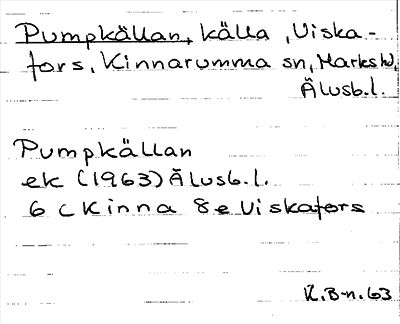 Pumpkällan, källa, Viska-
fors, Kinnarumma sn, Marks hd,
Älvsb.l.
Pumpkällan
ek (1963) Älvsb.l.
6 c Kinna 8e Viskafors
K.B-n. 63